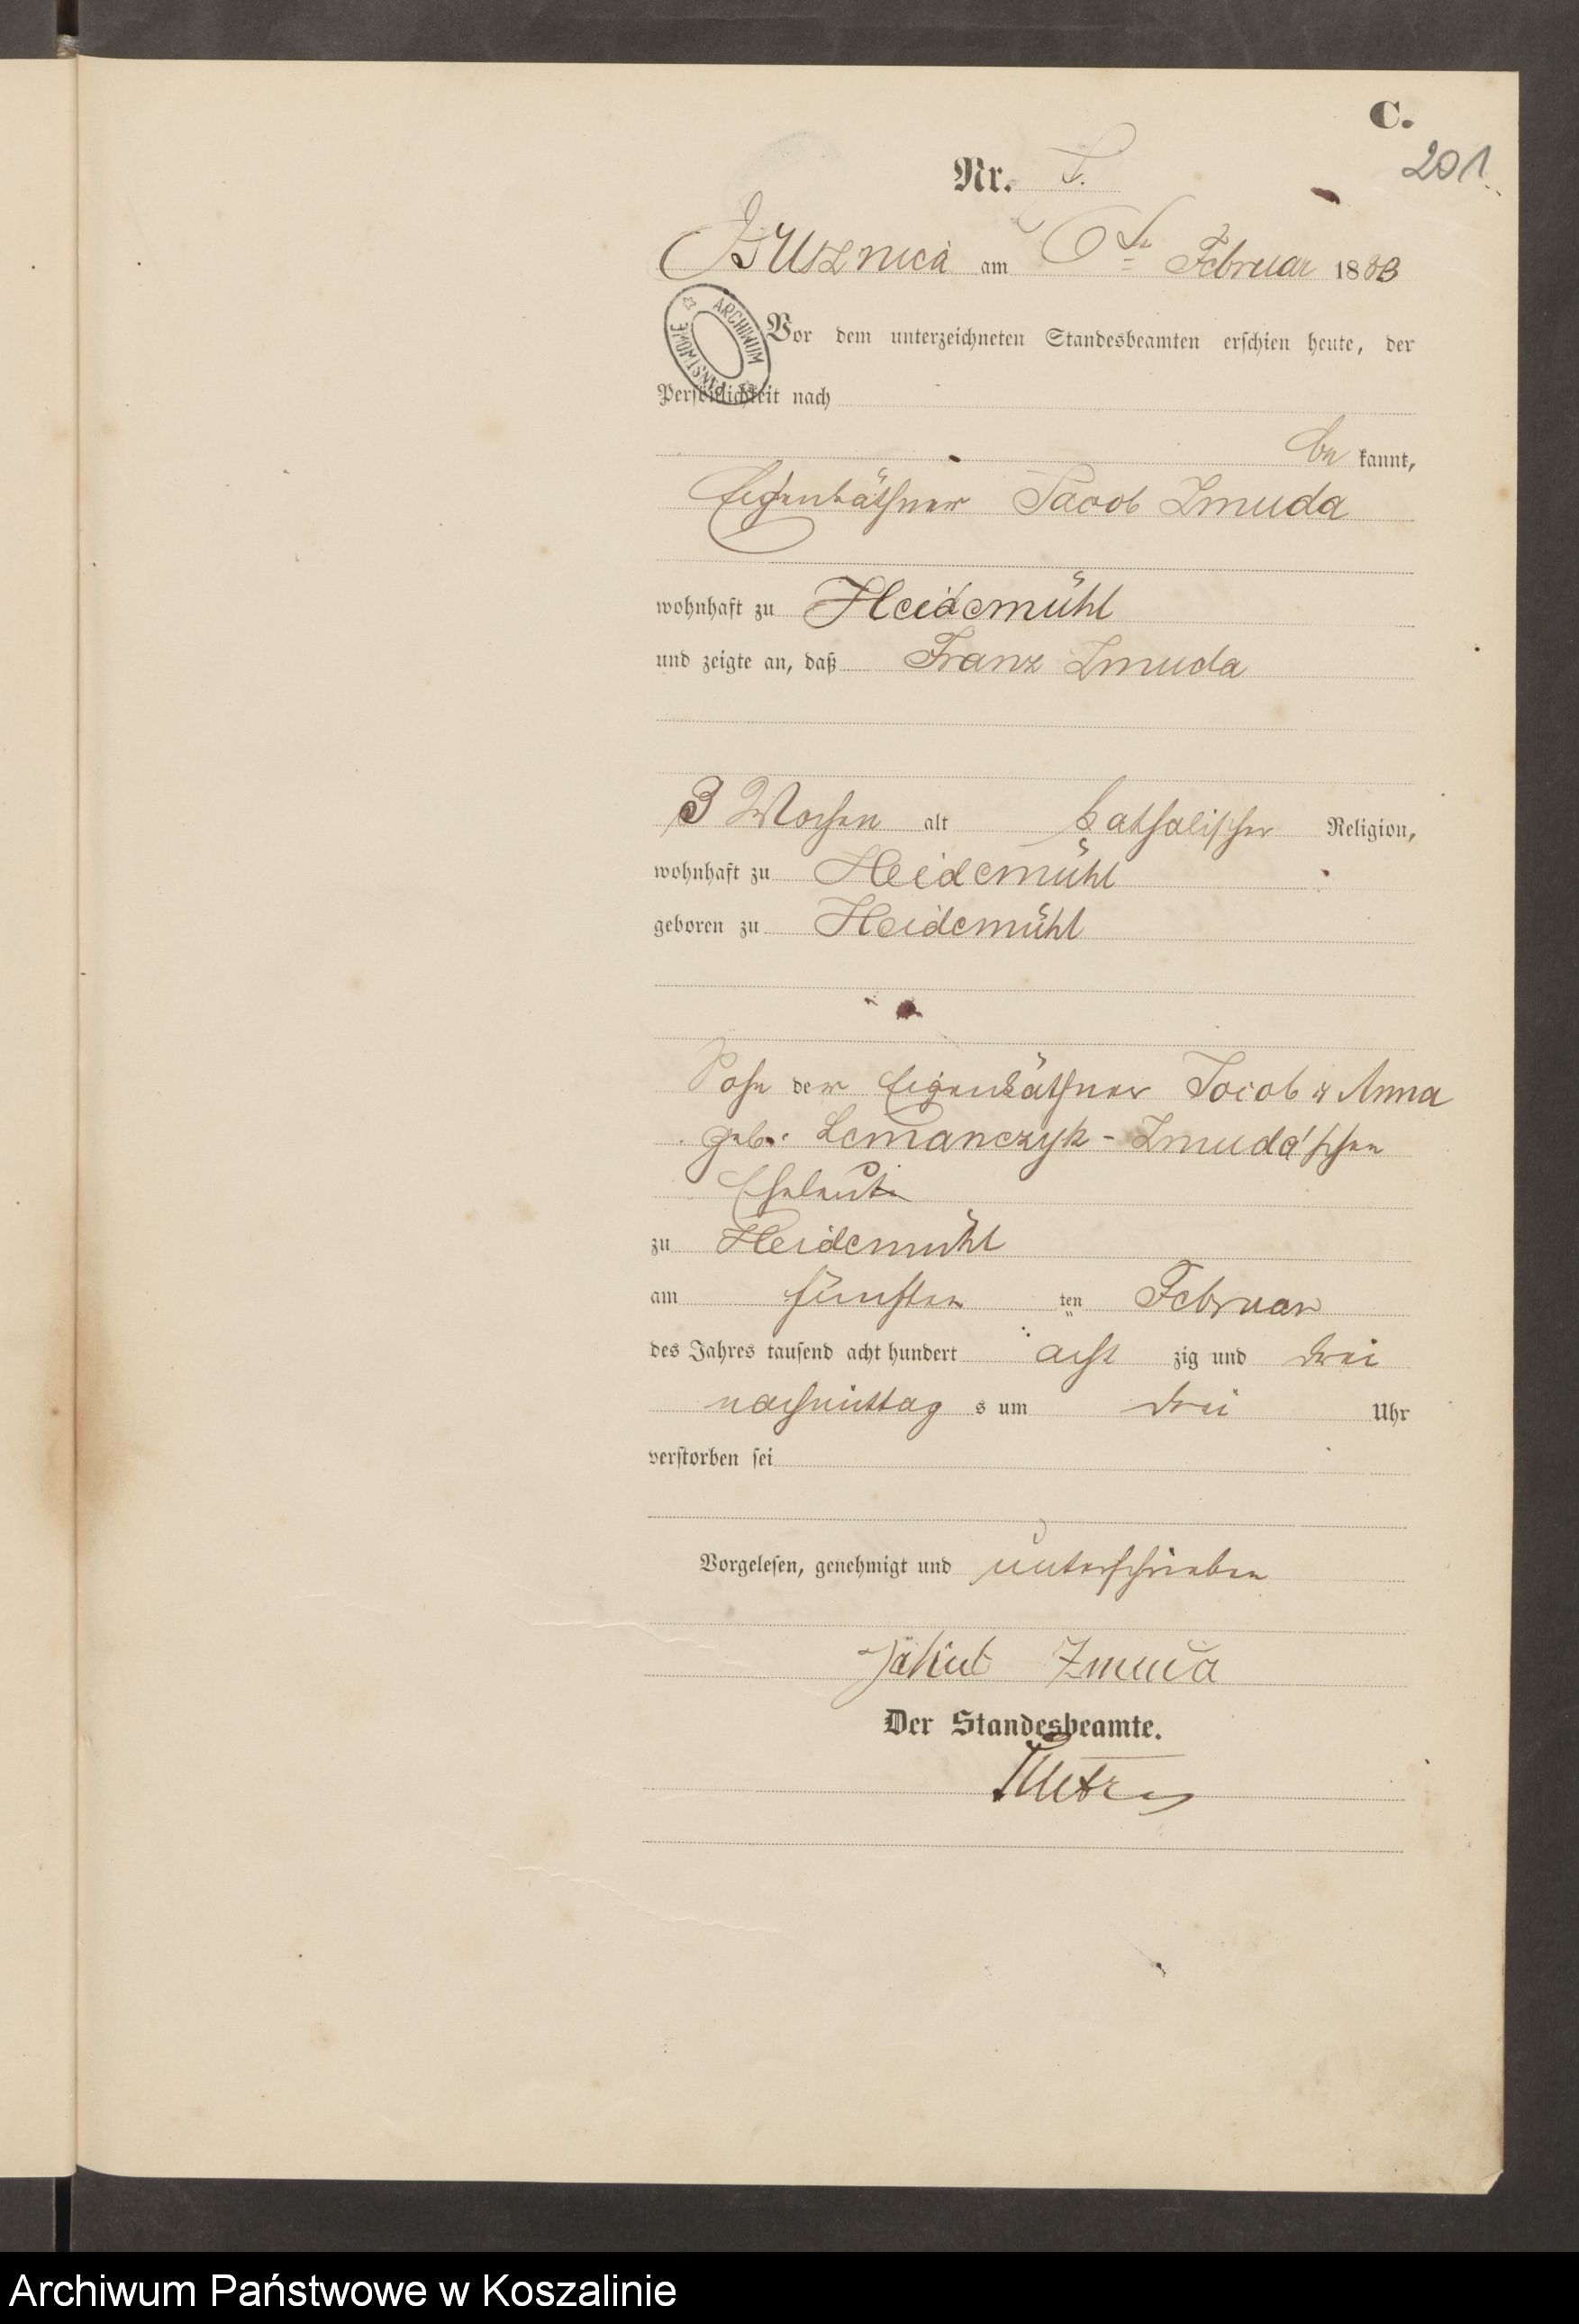 C.
201
Nr. 5.
Brusznica am 6ten Februar 1883
ARCHIWUM PAŃSTWOWE
Vor dem unterzeichneten Standesbeamten erschien heute, der
Persönlichkeit nach
be kannt,
Eigenkäthner Jacob Zmuda
wohnhaft zu Heidemühl
und zeigte an, daß Franz Zmuda
3 Wochen alt katholischer Religion,
wohnhaft zu Heidemühl
geboren zu Heidemühl
Sohn der Eigenkäthner Jacob & Anna
geb. Lemanczyk - Zmuda'schen
Eheleute
zu Heidemühl
am fünften ten Februar
des Jahres tausend acht hundert acht zig und drei
nachmittag s um drei Uhr
verstorben sei
Vorgelesen, genehmigt und unterschrieben
Jakub Zmuda
Der Standesbeamte.
Archiwum Państwowe w Koszalinie